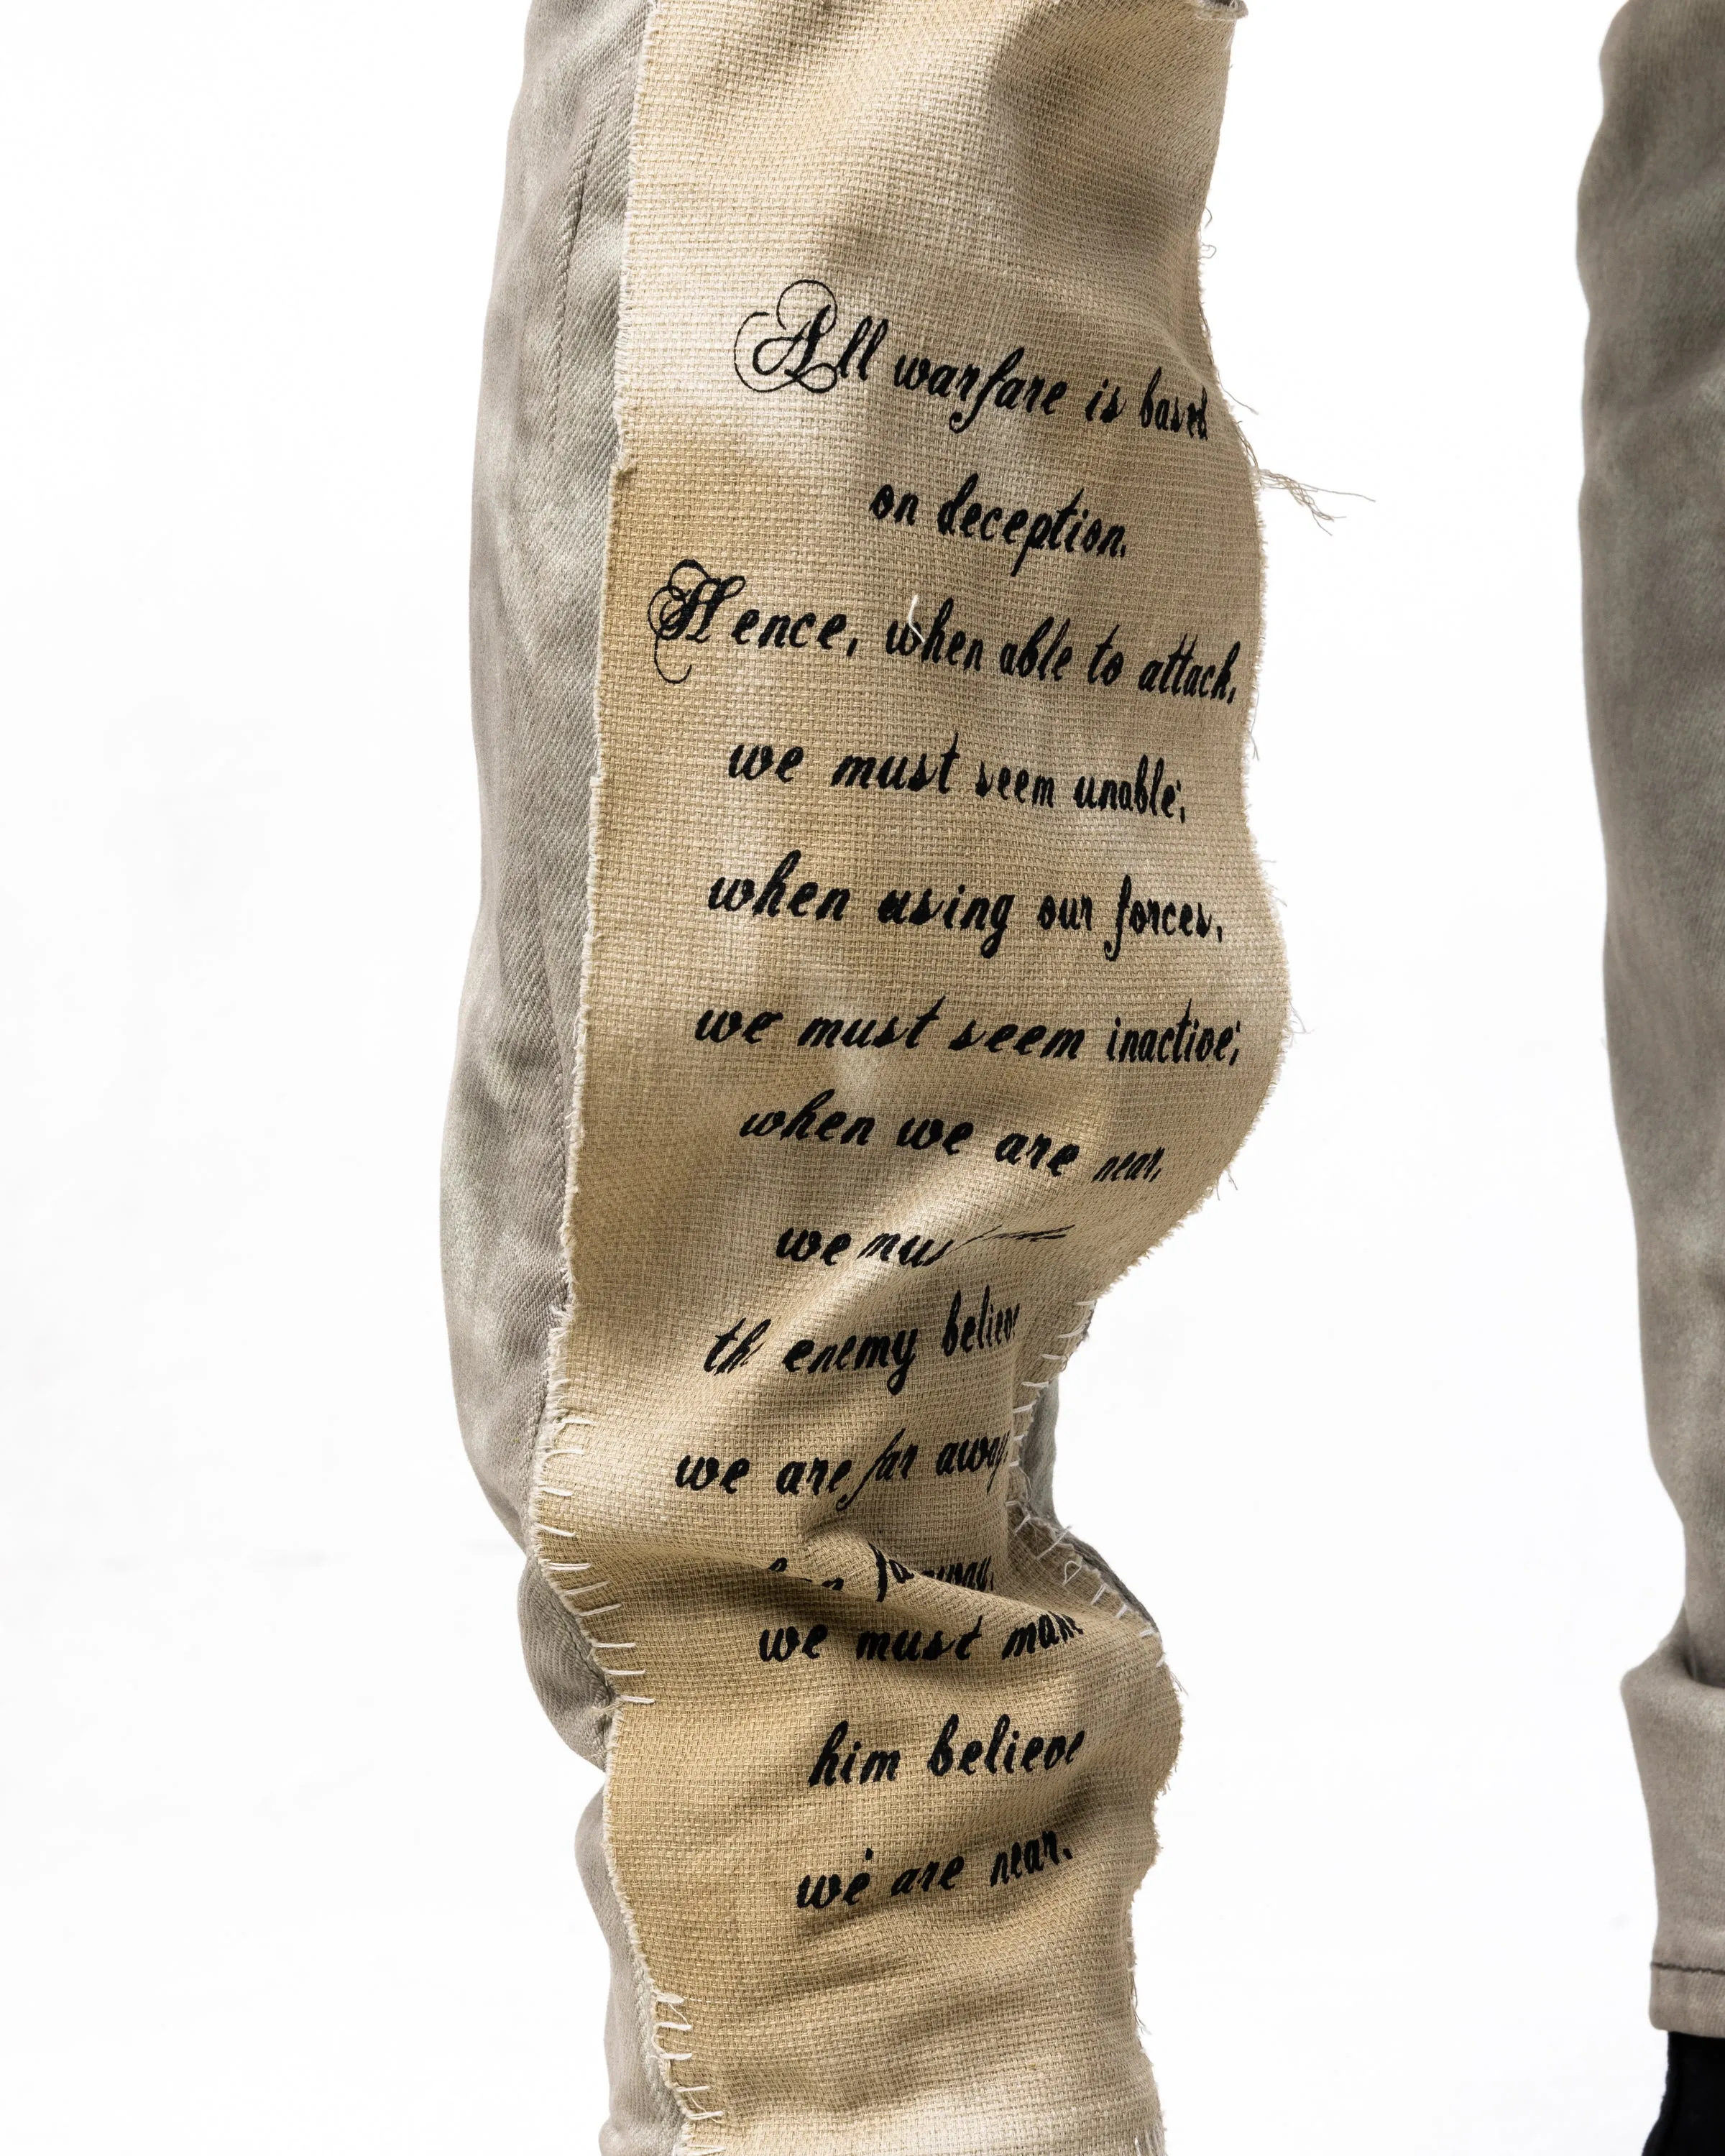 All warfare is based
on deception.
Hence, when able to attack,
we must seem unable;
when using our forces,
we must seem inactive;
when we are near,
we
enemy believe
we are far away
far away,
we must make
him believe
we are near.